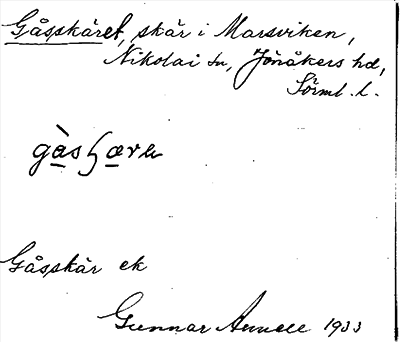 Gåsskäret, skär i Marsviken,
Nikolai sn, Jönåkers hd,
Sörml. l.
Gåsskär ek
Gunnar Annell 1933